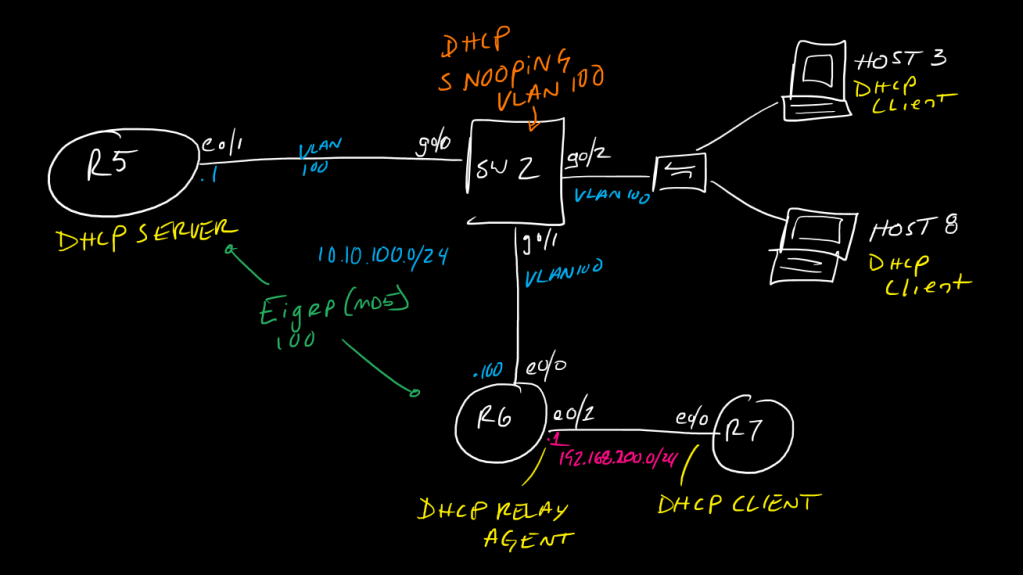 DHCP
SNOOPiNG
VLAN 100
HOST 3
DHCP
CLient
R5
e0/1
.1
VLAN
100
g0/0
SW 2
g0/2
VLAN 100
DHCP SERVER
10.10.100.0/24
g0/1
VLAN 100
HOST 8
DHCP
Client
EigRP (MD5)
100
.100
e0/0
R6
e0/2
.1
192.168.200.0/24
e0/0
R7
DHCP RELAY
AGENT
DHCP CLIENT